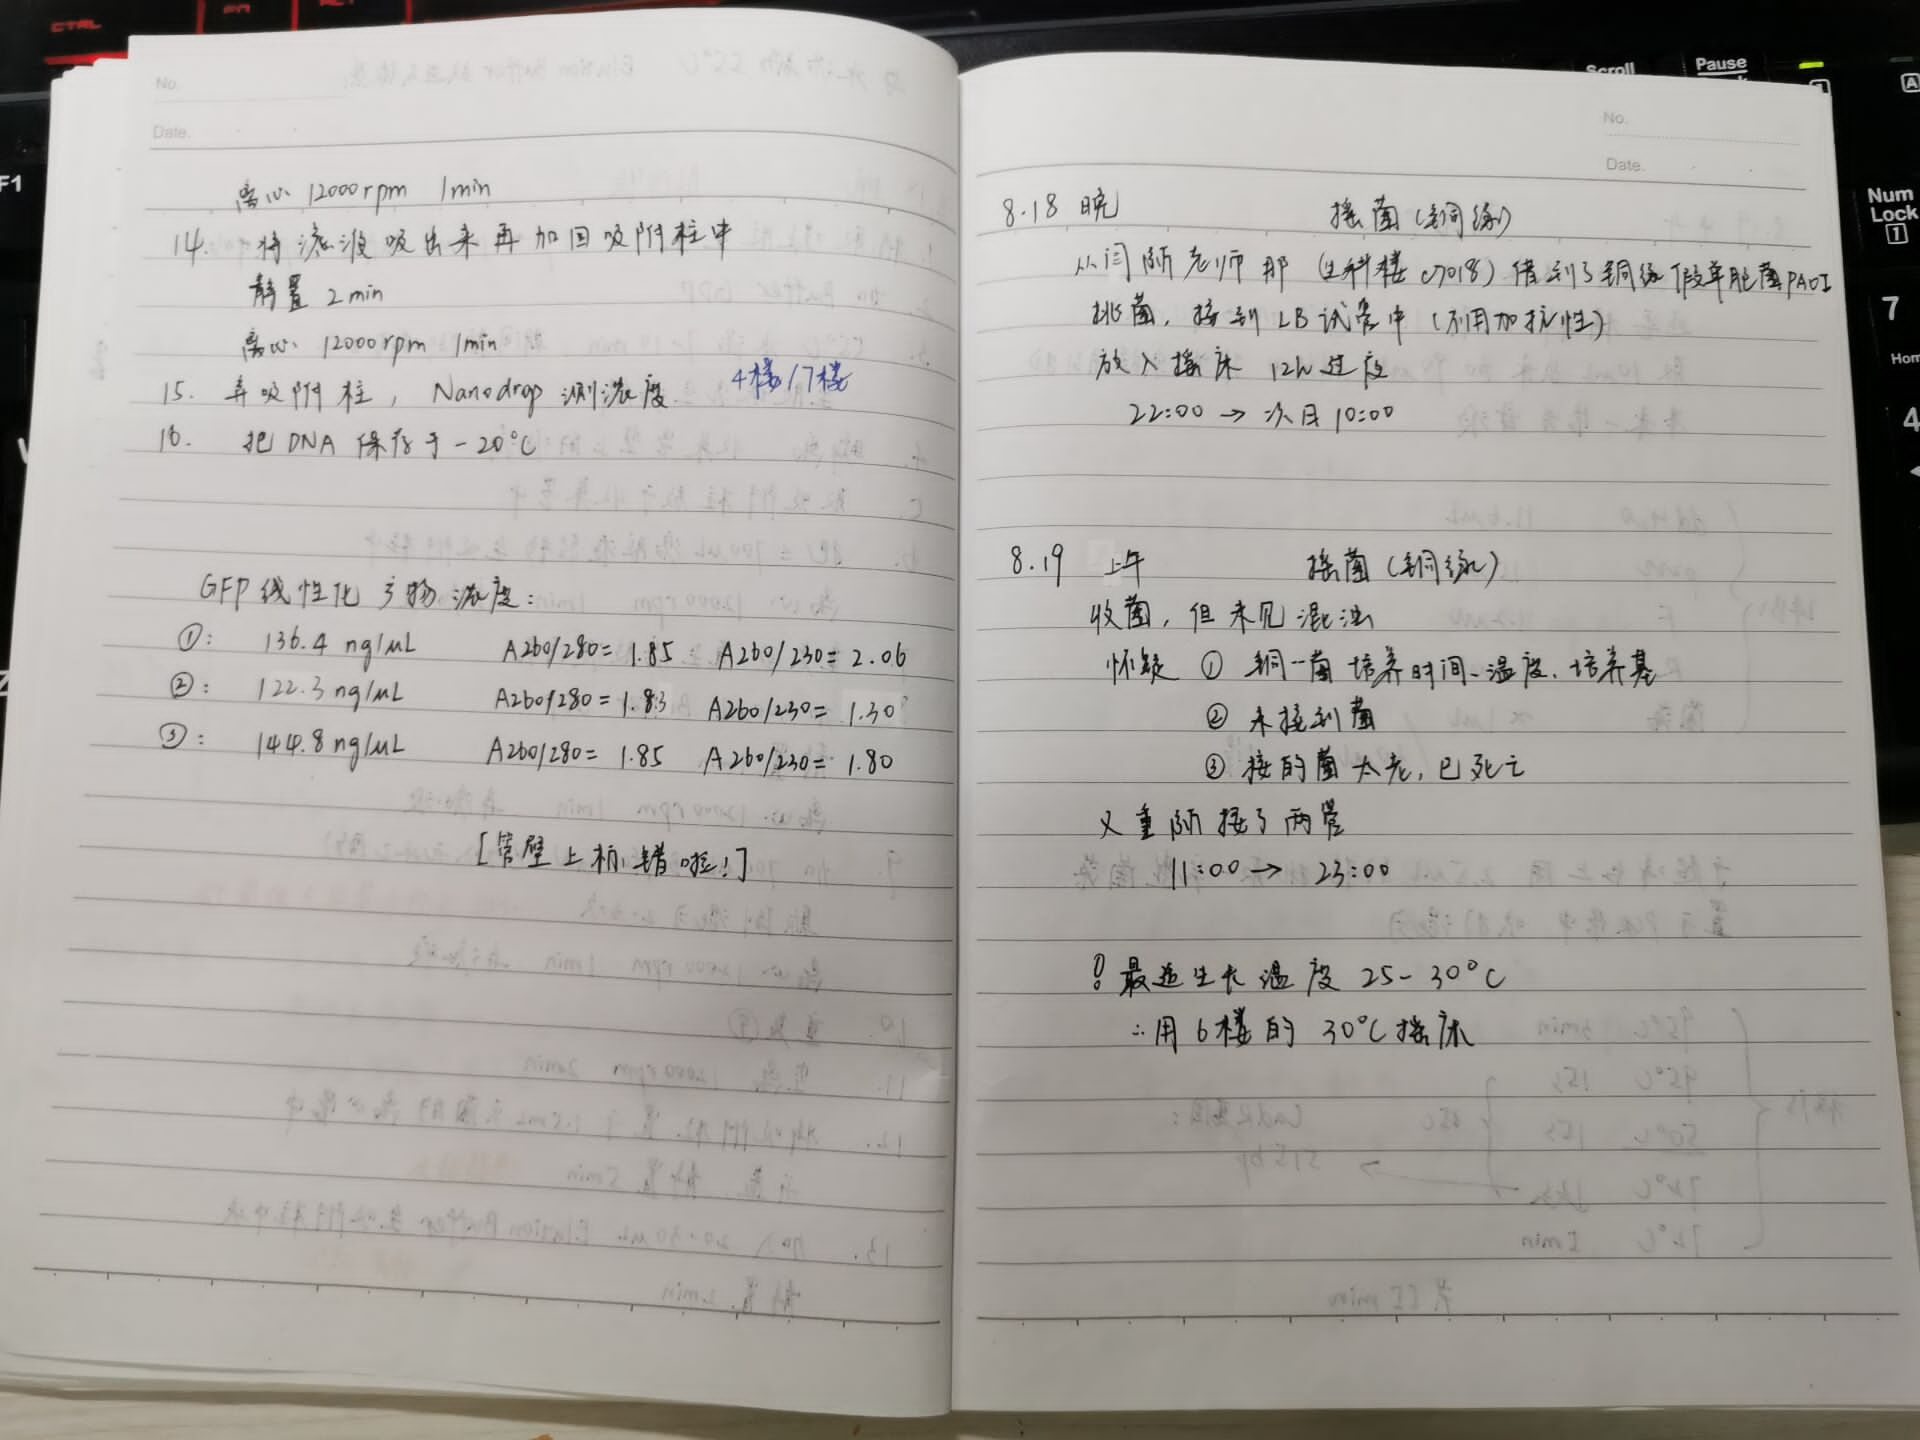 No.
Date.
离心 12000rpm 1min
14. 将滤液吸出来再加回吸附柱中
静置 2min
离心 12000rpm 1min
15. 弃吸附柱，Nanodrop 测浓度 4楼/7楼
16. 把DNA保存于-20°C
GFP线性化产物浓度：
①： 136.4 ng/μL A260/280=1.85 A260/230=2.06
②： 122.3 ng/μL A260/280=1.83 A260/230=1.30
③： 144.8 ng/μL A260/280=1.85 A260/230=1.80
[管壁上标错啦！]
No.
Date.
8.18 晚 摇菌(铜绿)
从闫 老师那(生科楼 c7018)借到了铜绿假单胞菌PAO1
挑菌，接到LB试管中(不用加抗性)
放入摇床 12h过夜
22:00→次日10:00
8.19 上午 摇菌(铜绿)
收菌，但未见混浊
怀疑 ① 铜一菌培养时间、温度、培养基
② 未接到菌
③ 接的菌太老，已死亡
又重新接了两管
11:00→23:00
！最适生长温度 25-30°C
∴用6楼的30°C摇床
CTRL
F1
Scroll
Pause
Num
Lock
1
7
4
A